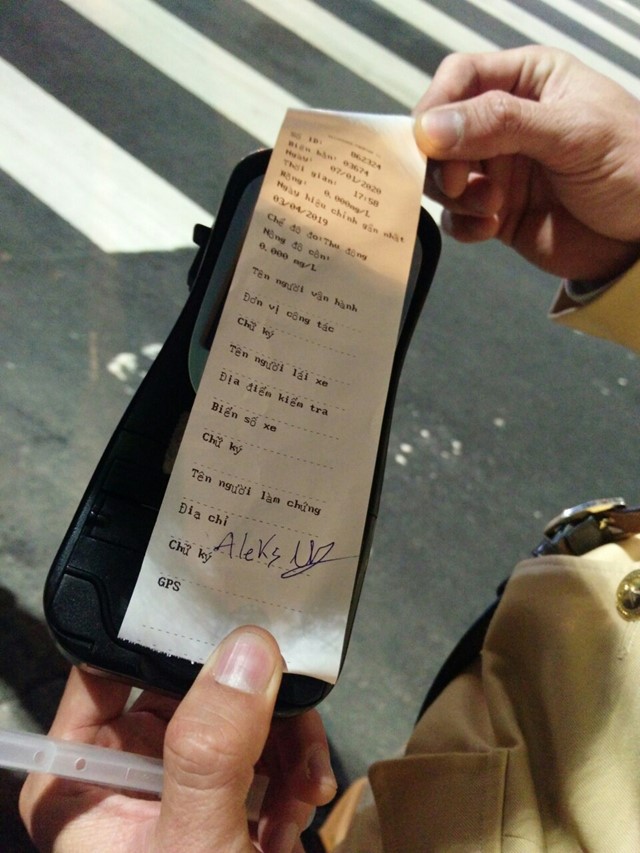 Số ID: 062324
Biên bản: 03674
Ngày: 07/01/2020
Thời gian: 17:58
Nồng: 0.000mg/L
Ngày hiệu chỉnh gần nhất
03/04/2019
Chế độ đo:Thụ động
Nồng độ cồn:
0.000 mg/L
Tên người vận hành
Đơn vị công tác
Chữ ký
Tên người lái xe
Địa điểm kiểm tra
Biển số xe
Chữ ký
Tên người làm chứng
Địa chỉ
Chữ ký Aleks
GPS